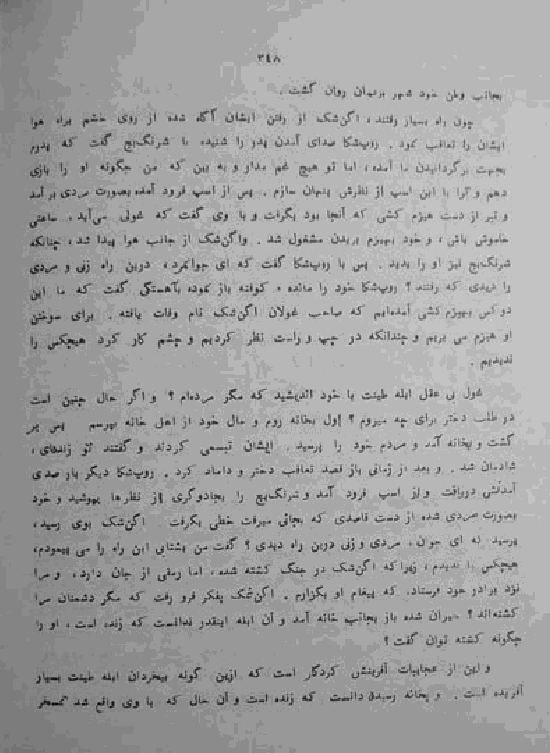 ۳۴۸
بجانب وطن خود شهر بردمان روان گشت .
چون راه بسیار رفتند ، اگن‌شک از رفتن ایشان آگاه شده از روی خشم براه هوا
ایشان را تعاقب نمود . روپ‌شکا صدای آمدن پدر را شنیده با شرنگ‌بج گفت که پدرم
بجهت برگردانیدن ما آمده ، اما تو هیچ غم مدار و به بین که من چگونه او را بازی
دهم و ترا با این اسپ از نظرش پنهان سازم . پس از اسپ فرود آمده بصورت مردی بر آمد
و تبر از دست هیزم کشی که آنجا بود بگرفت و با وی گفت که غولی می‌آید ، ساعتی
خاموش باش ، و خود بهیزم بریدن مشغول شد . و اگن‌شک از جانب هوا پیدا شد ، چنانکه
شرنگ‌بج نیز او را بدید . پس با روپ‌شکا گفت که ای جوانمرد ، درین راه زنی و مردی
را دیدی که رفتند ؟ روپ‌شکا خود را مانده و کوفته باز نموده بآهستگی گفت که ما این
دو کس بهیزم کشی آمده‌ایم که صاحب غولان اگن‌شک نام وفات یافته . برای سوختن
او هیزم می بریم و چندانکه در چپ و راست نظر کردیم و چشم کار کرد هیچکس را
ندیدیم .
غول بی عقل ابله طینت با خود اندیشید که مگر مرده‌ام ؟ و اگر حال چنین است
در طلب دختر برای چه میروم ؟ اول بخانه روم و حال خود از اهل خانه بپرسم . پس بر
گشت و بخانه آمد و مردم خود را پرسید . ایشان تبسمی کردند و گفتند تو زنده‌ای ،
شادمان شد . و بعد از زمانی باز قصد تعاقب دختر و داماد کرد . روپ‌شکا دیگر بار صدای
آمدنش دریافت و از اسپ فرود آمد و شرنگ‌بج را بجادوگری از نظرها پوشید و خود
بصورت مردی شده از دست قاصدی که بجائی میرفت خطی بگرفت . اگن‌شک بوی رسید ،
پرسید که ای جوان ، مردی و زنی درین راه دیدی ؟ گفت من بشتابی این راه را می پیمودم ،
هیچکس را ندیدم ، زیراکه اگن‌شک در جنگ کشته شده ، اما رمقی از جان دارد ، و مرا
نزد برادر خود فرستاد ، که پیغام او بگزارم . اگن‌شک بفکر فرو رفت که مگر دشمنان مرا
کشته‌اند ؟ حیران شده باز بجانب خانه آمد و آن ابله اینقدر ندانست که زنده است ، او را
چگونه کشته توان گفت ؟
و این از عجایبات آفرینش کردگار است که ازین گونه بیخردان ابله طینت بسیار
آفریده است . و بخانه رسیده دانست که زنده است و آن حال که با وی واقع شد تمسخر